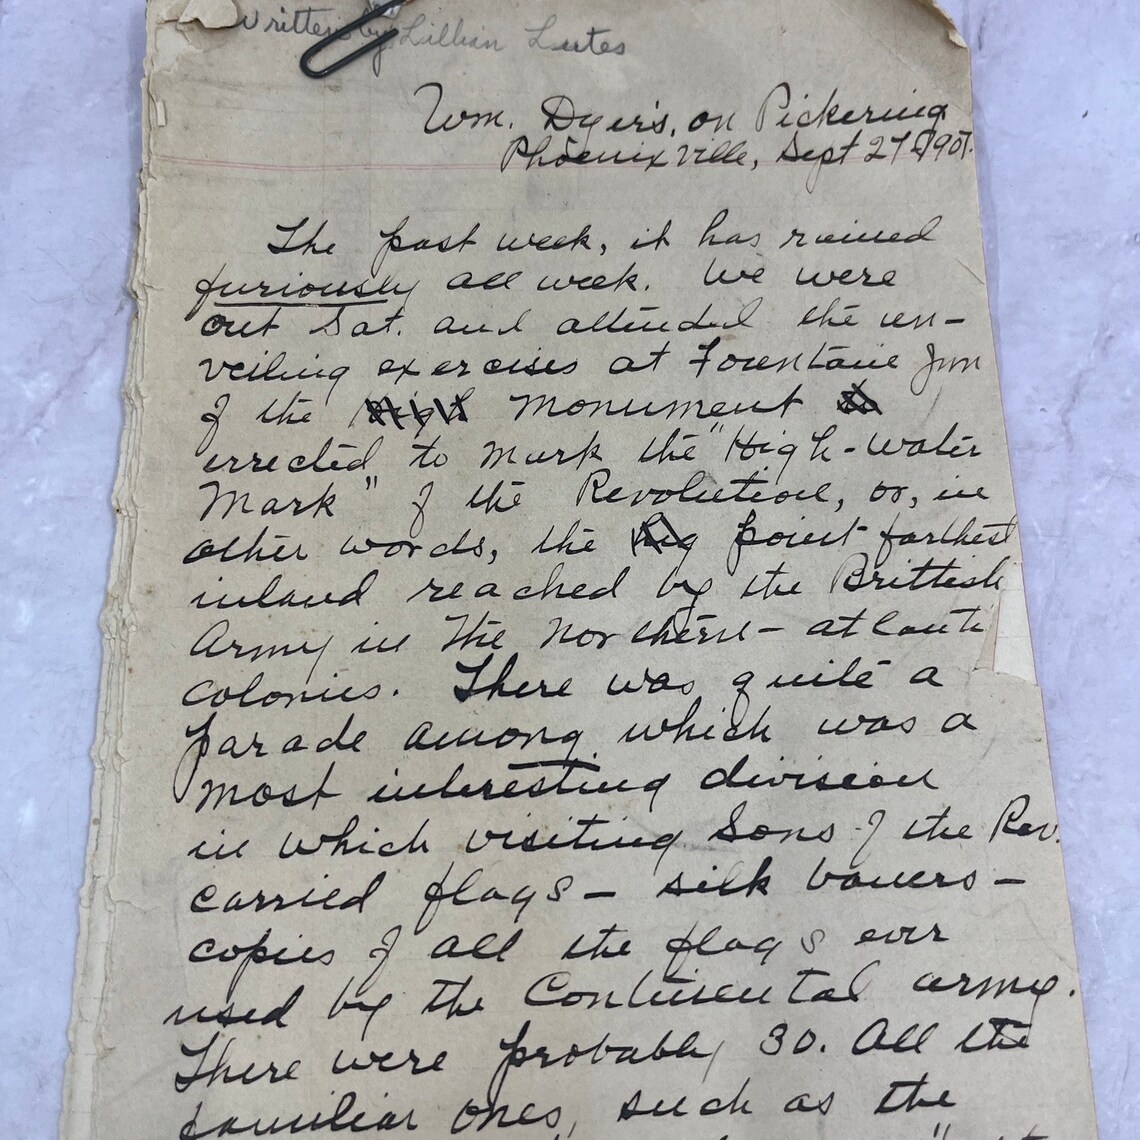 Written by Lillian Lutes
Wm. Dyer's, on Pickering
Phoenixville, Sept 27 1907.
The past week, it has rained
furiously all week. We were
out Sat. and attended the un-
veiling exercises at Fountain Inn
of the monument
errected to mark the "High-water
Mark" of the Revolution, or, in
other words, the point farthest
inland reached by the Brittish
Army in the Northern-atlanti
colonies. There was quite a
parade among which was a
most interesting division
in which visiting Sons of the Rev.
carried flags - silk baners -
copies of all the flags ever
used by the Continental army.
There were probably 30. All the
familiar ones, such as the